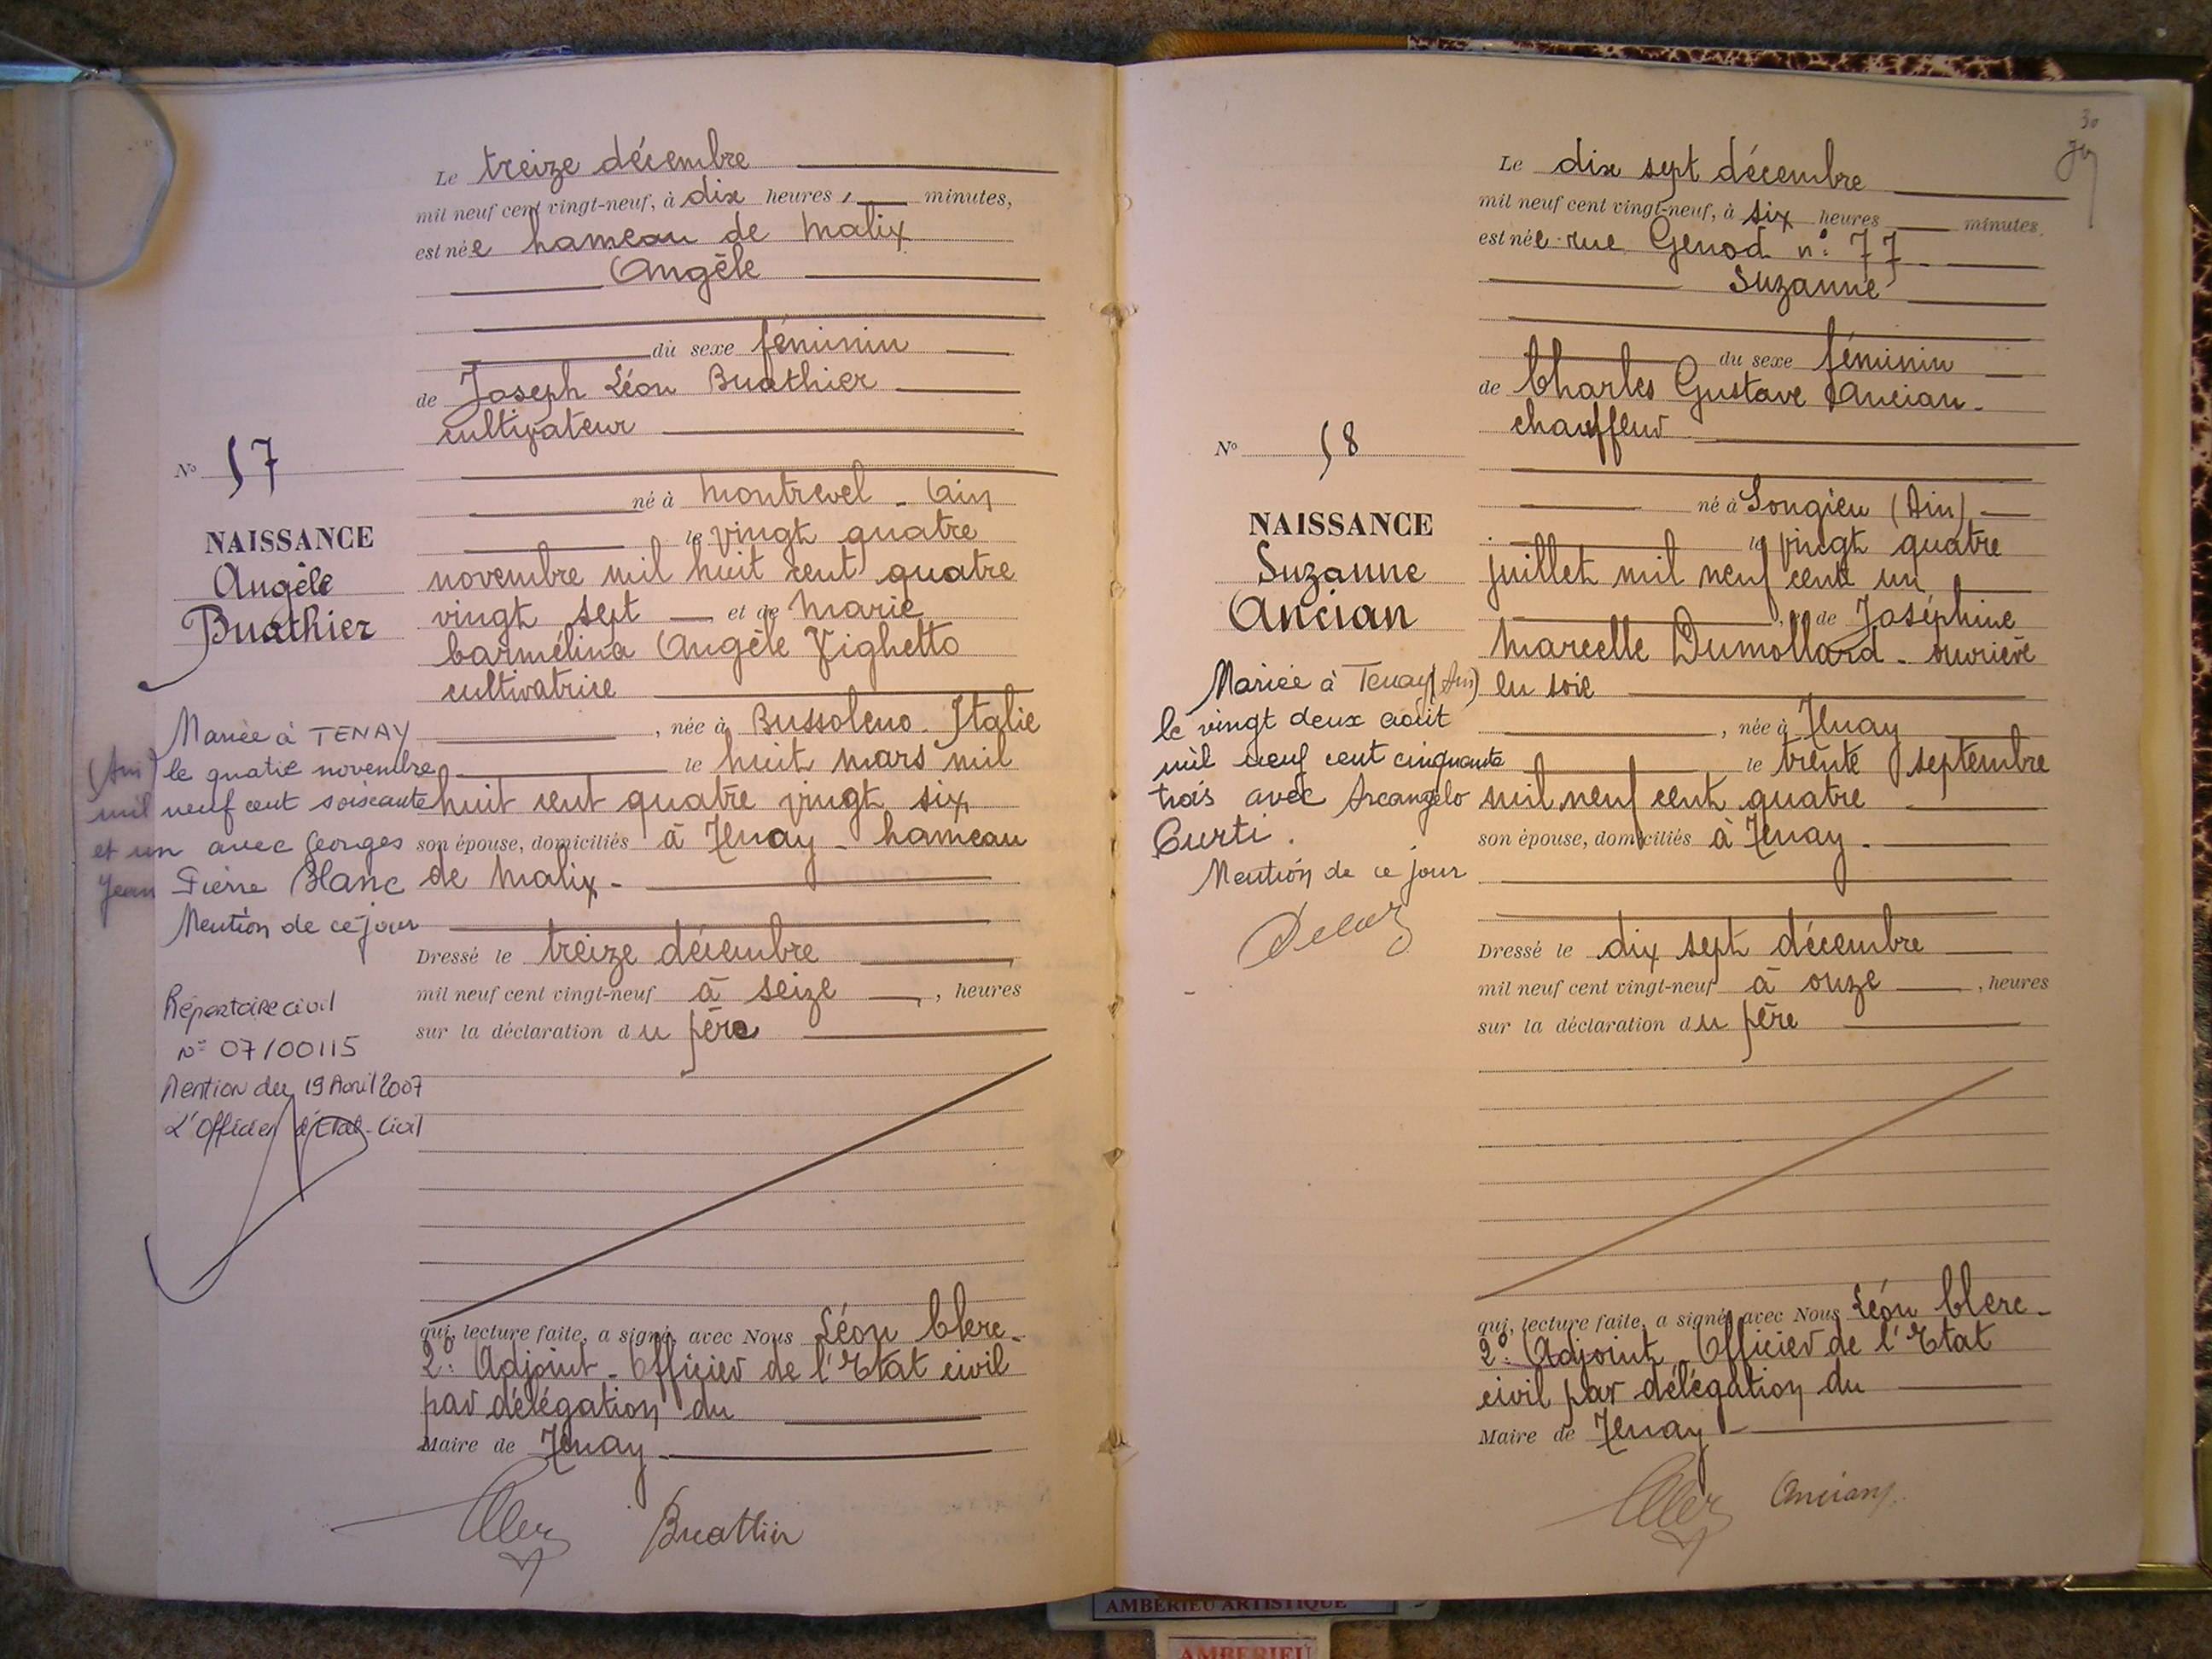 Le treize décembre
mil neuf cent vingt-neuf, à dix heures, minutes,
est née hameau de Malix
Angèle
du sexe féminin
de Joseph Léon Buathier
cultivateur
né à Montrevel - Ain
le vingt quatre
novembre mil huit cent quatre
vingt sept et de Marie
Carmélina Angèle Vighetto
cultivatrice
, née à Bussoleno. Italie
le huit mars mil
huit cent quatre vingt six
son épouse, domiciliés à Tenay - hameau
de Malix -
Dressé le treize décembre
mil neuf cent vingt-neuf à seize , heures
sur la déclaration du père
qui, lecture faite, a signé avec Nous Léon Clerc -
2e: Adjoint - Officier de l'Etat civil
par délégation du
Maire de Tenay
Buathier
No 57
NAISSANCE
Angèle
Buathier
Mariée à TENAY
(Ain) le quatre novembre
mil neuf cent soixante
et un avec Georges
Jean Pierre Blanc
Mention de ce jour
Répertoire civil
n° 07/00115
Mention du 19 Avril 2007
L'Officier d'Etat-Civil
30
Le dix sept décembre
mil neuf cent vingt-neuf, à six heures minutes,
est née rue Genod n° 77
Suzanne
du sexe féminin
de Charles Gustave Ancian.
chauffeur
né à Songieu (Ain)
le vingt quatre
juillet mil neuf cent un
, et de Joséphine
Marcelle Dumollard - ouvrière
en soie
, née à Tenay
le trente septembre
mil neuf cent quatre
son épouse, domiciliés à Tenay.
Dressé le dix sept décembre
mil neuf cent vingt-neuf à onze , heures
sur la déclaration du père
qui, lecture faite, a signé avec Nous Léon Clerc -
2e: Adjoint Officier de l'Etat
civil par délégation du
Maire de Tenay
Ancian
No 58
NAISSANCE
Suzanne
Ancian
Mariée à Tenay (Ain)
le vingt deux août
mil neuf cent cinquante
trois avec Arcangelo
Curti.
Mention de ce jour
AMBÉRIEU ARTISTIQUE
AMBERIEU